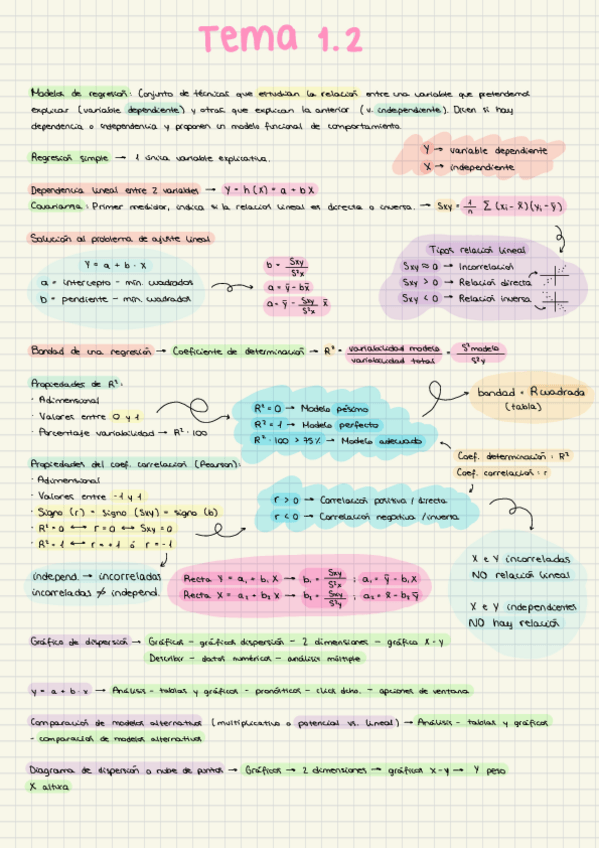 Tema 1.2
Modelos de regresión: Conjunto de técnicas que estudian la relación entre una variable que pretendemos
explicar (variable dependiente) y otras que explican la anterior (v. independiente). Dicen si hay
dependencia o independencia y proponen un modelo funcional de comportamiento.
Y → variable dependiente
X → independiente
Regresión simple → 1 única variable explicativa.
Dependencia lineal entre 2 variables → Y = h(X) = a + bX
Covarianza: Primer medidor, indica si la relación lineal es directa o inversa. → Sxy = 1/n Σ (xi - x̄)(yi - ȳ)
Solución al problema de ajuste lineal
Y = a + b · X
a = intercepto - mín. cuadrados
b = pendiente - mín. cuadrados
b = Sxy / S²x
a = ȳ - bx̄
a = ȳ - Sxy/S²x x̄
Tipos relación lineal
Sxy ≈ 0 → Incorrelación
Sxy > 0 → Relación directa
Sxy < 0 → Relación inversa
Bondad de una regresión → Coeficiente de determinación → R² = variabilidad modelo / variabilidad total = S²modelo / S²y
Propiedades de R²:
· Adimensional
· Valores entre 0 y 1
· Porcentaje variabilidad → R² · 100
R² = 0 → Modelo pésimo
R² = 1 → Modelo perfecto
R² · 100 > 75% → Modelo adecuado
bondad = R cuadrada
(tabla)
Coef. determinación : R²
Coef. correlación : r
Propiedades del coef. correlación (Pearson):
· Adimensional
· Valores entre -1 y 1
· Signo (r) = signo (Sxy) = signo (b)
· R² = 0 ↔ r = 0 ↔ Sxy = 0
· R² = 1 ↔ r = +1 ó r = -1
r > 0 → Correlación positiva / directa
r < 0 → Correlación negativa / inversa
X e Y incorreladas
NO relación lineal
X e Y independientes
NO hay relación
independ. → incorreladas
incorreladas ⇏ independ.
Recta Y = a₁ + b₁ X → b₁ = Sxy / S²x ; a₁ = ȳ - b₁ x̄
Recta X = a₂ + b₂ X → b₂ = Sxy / S²y ; a₂ = x̄ - b₂ ȳ
Gráfico de dispersión → Gráficos - gráficos dispersión - 2 dimensiones - gráfico X-Y
Describir - datos numéricos - análisis múltiple
y = a + b · x → Análisis - tablas y gráficos - pronósticos - click dcho. - opciones de ventana
Comparación de modelos alternativos (multiplicativo o potencial vs. lineal) → Análisis - tablas y gráficos
- comparación de modelos alternativos
Diagrama de dispersión o nube de puntos → Gráficos → 2 dimensiones → gráficos x-y → Y peso
X altura